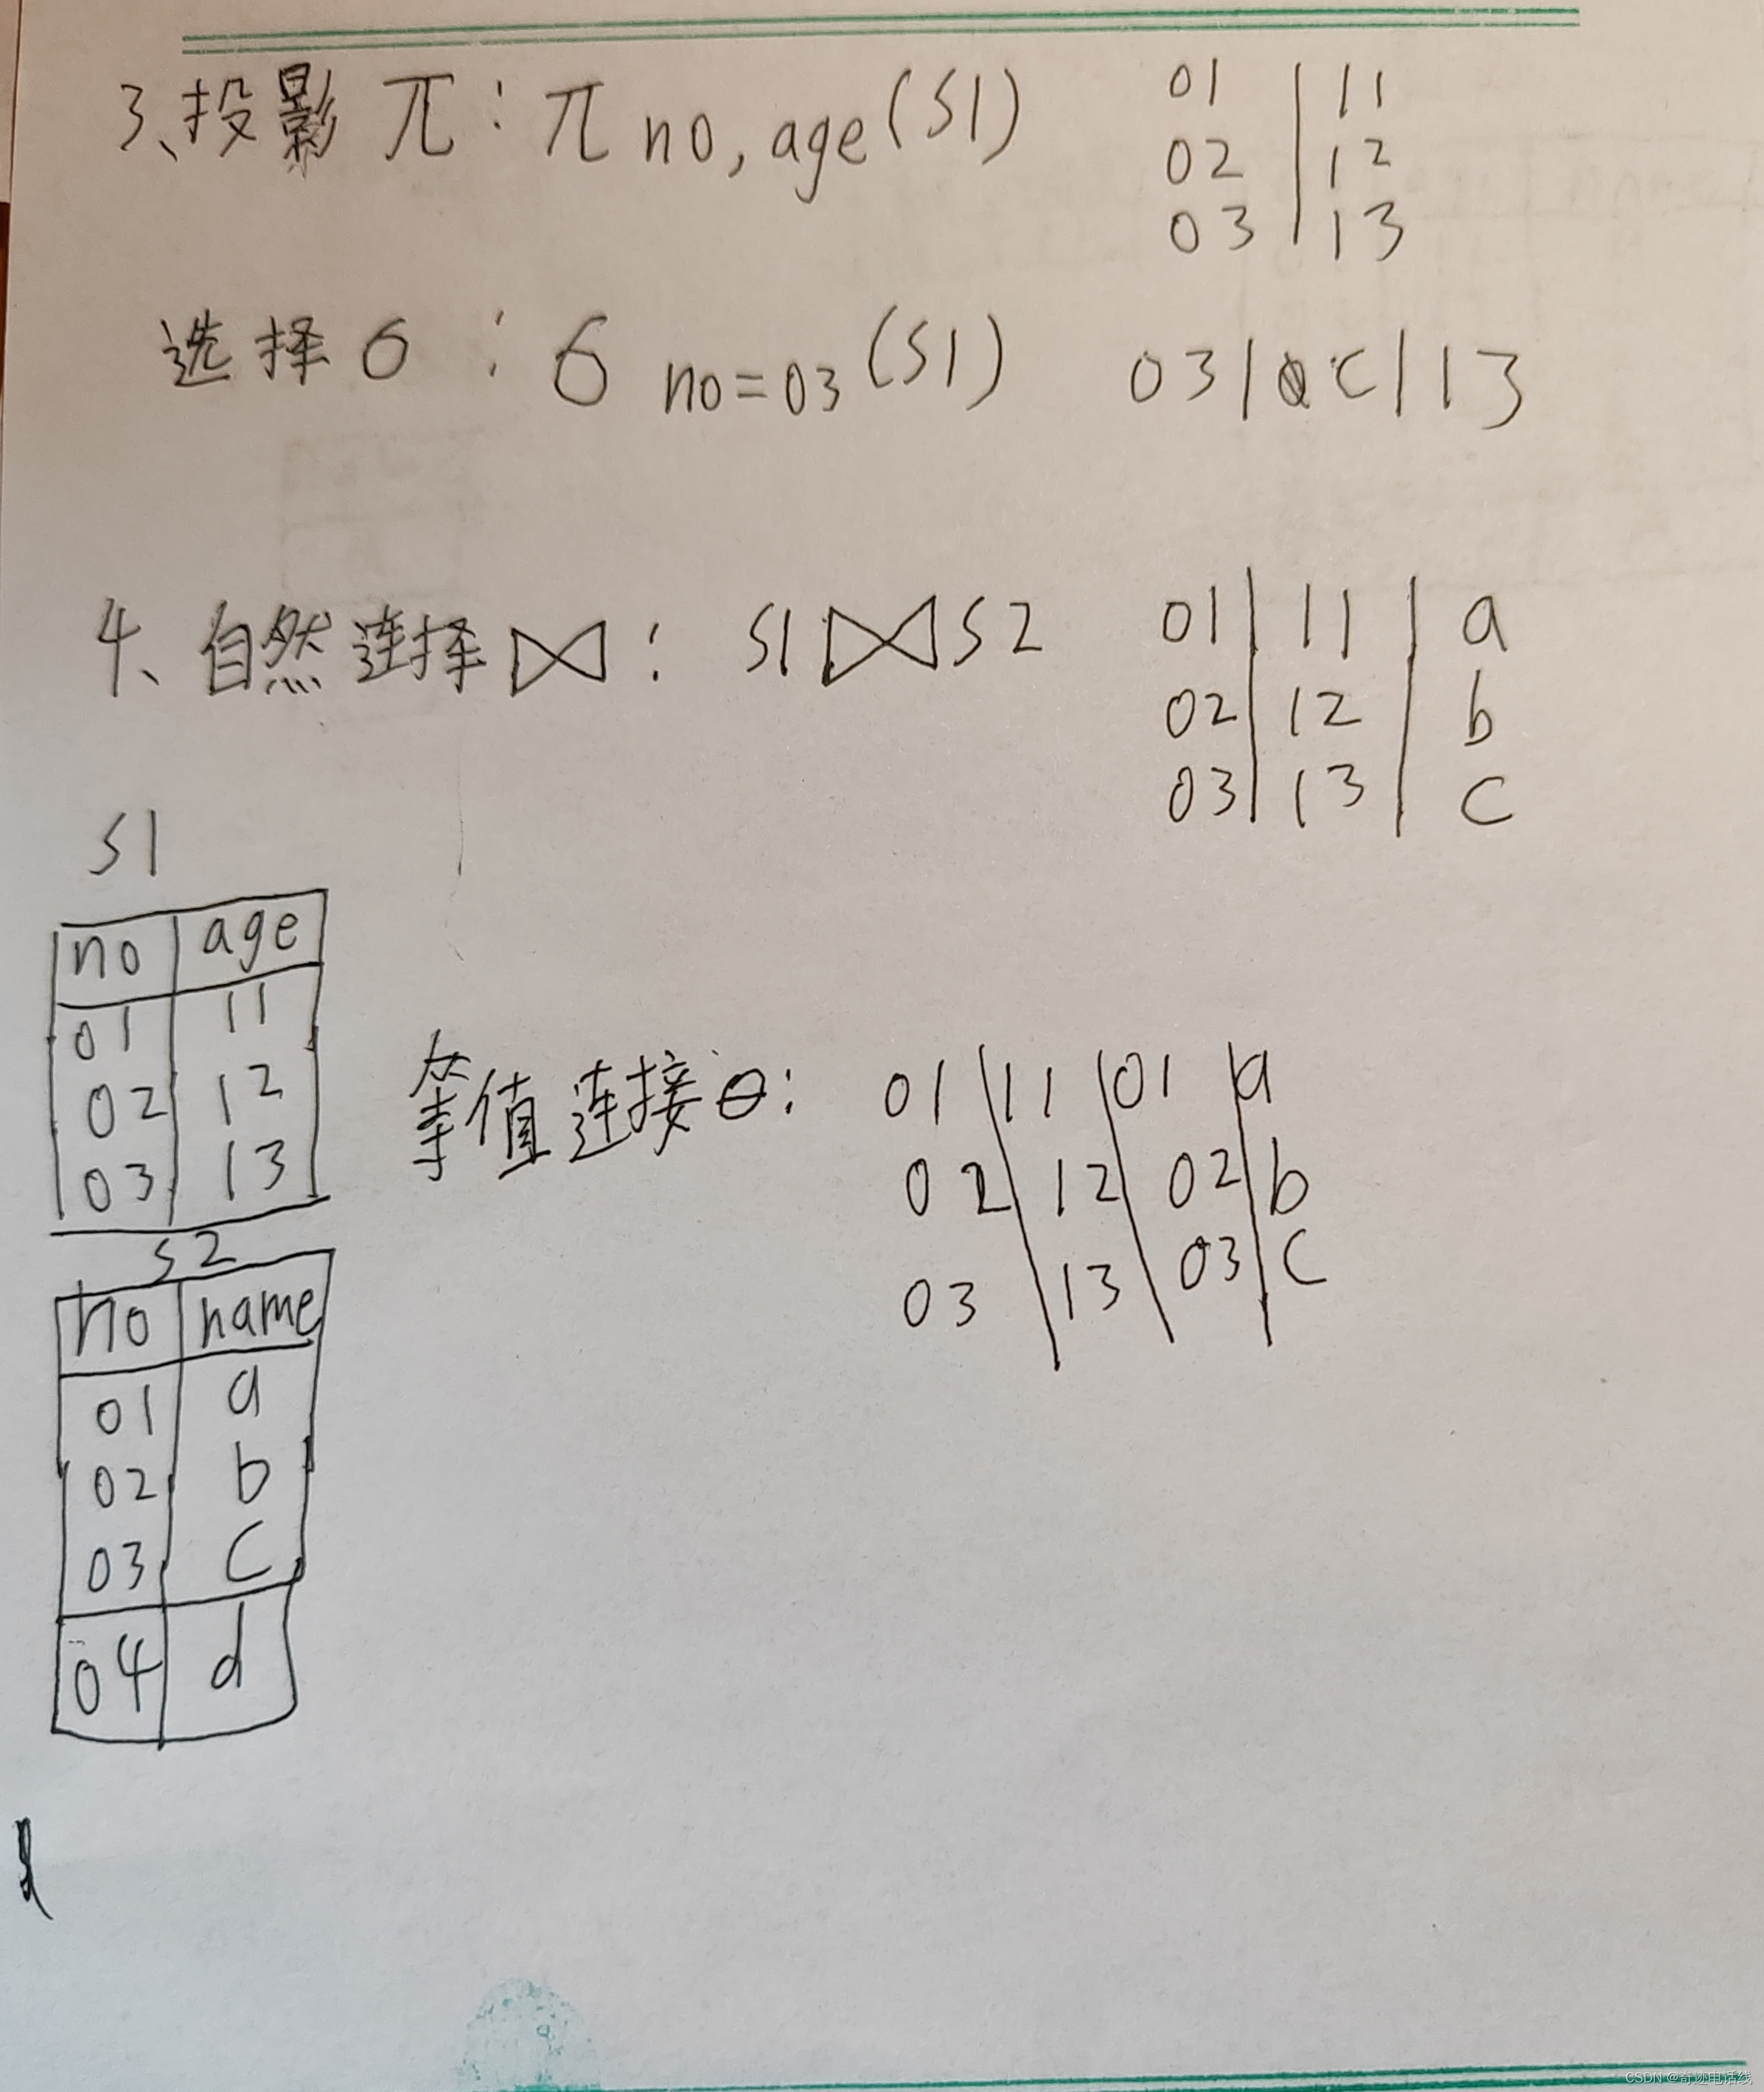 3、投影 π：π no, age (S1)
01 | 11
02 | 12
03 | 13
选择 σ：σ no=03 (S1) 03 | c | 13
4、自然连择 ⋈：S1 ⋈ S2
01 | 11 | a
02 | 12 | b
03 | 13 | c
S1
no | age
01 | 11
02 | 12
03 | 13
S2
no | name
01 | a
02 | b
03 | c
04 | d
等值连接 θ：
01 | 11 | 01 | a
02 | 12 | 02 | b
03 | 13 | 03 | c
CSDN @奇迹电话线